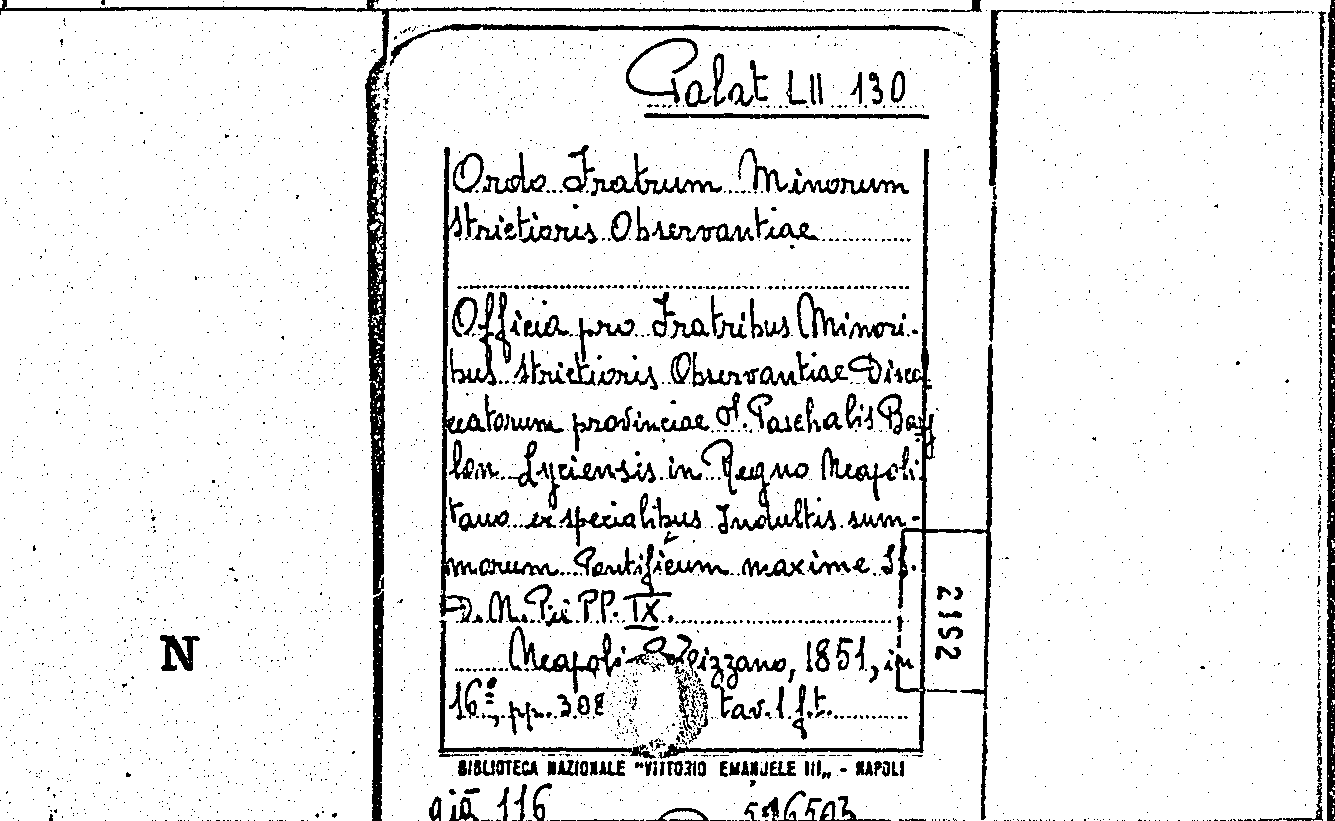 Palat LII 130
Ordo Fratrum Minorum
strictioris Observantiae
Officia pro Fratribus Minori-
bus strictioris Observantiae Discal
ceatorum provinciae S. Paschalis Bay
lon Lyciensis in Regno Neapoli-
tano ex specialibus Indultis sum-
morum Pontificum maxime SS.
D. N. Pii PP. IX.
Neapoli 1851, in
16°, pp. 308 tav. 1 f.t.
2152
N
BIBLIOTECA NAZIONALE "VITTORIO EMANUELE III„ - NAPOLI
già 116 596503